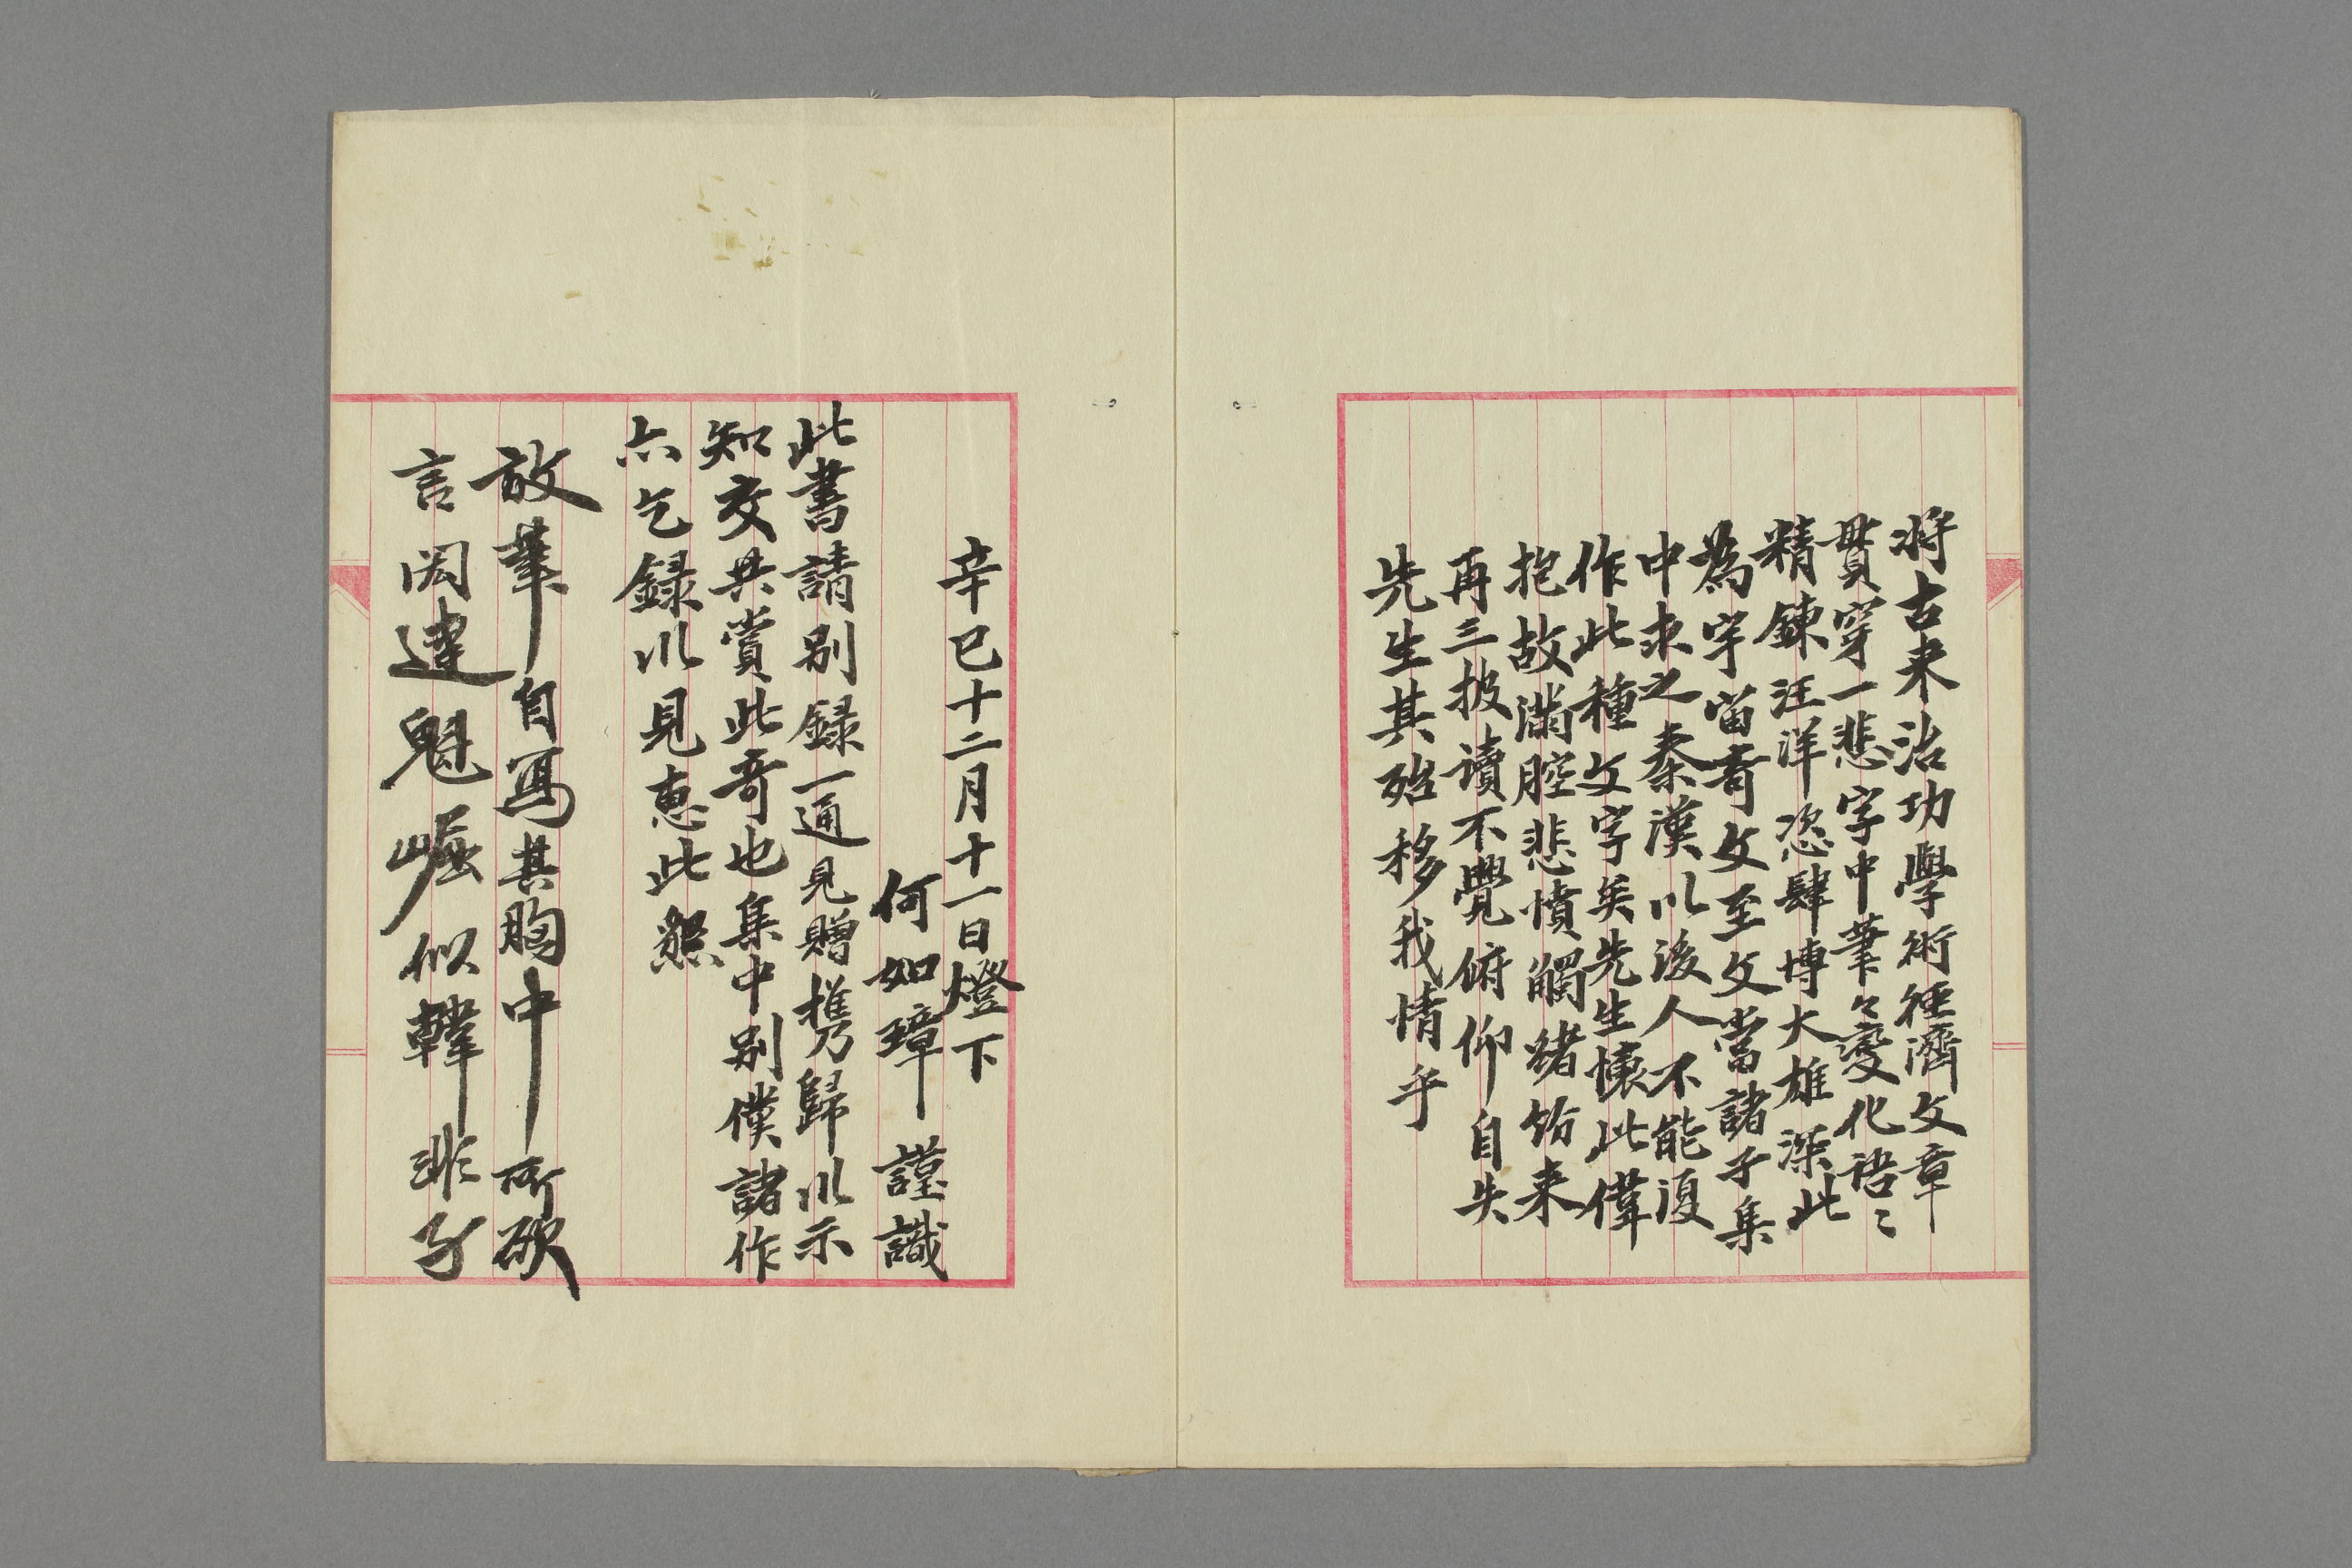 将古来治功學術経濟文章
貫穿一悲字中筆々變化語々
精錬汪洋恣肆博大雄深此
為宇宙奇文至文當諸子集
中求之秦漢以後人不能復
作此種文字矣先生懐此偉
抱故満腔悲憤觸緒紛来
再三披讀不覺俯仰自失
先生其殆移我情乎
辛巳十二月十一日燈下
何如璋謹識
此書請别録一通見贈携歸以示
知交共賞此奇也集中别僕諸作
亦乞録以見恵此懇
放筆自寫其胸中所欲
言閎達魁崛似韓非子